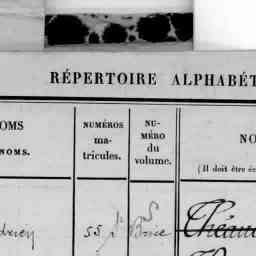 RÉPERTOIRE ALPHABÉT
OMS
NOMS.
NUMÉROS
ma-
tricules.
NU-
MÉRO
du
volume.
NO
(Il doit être éc
55